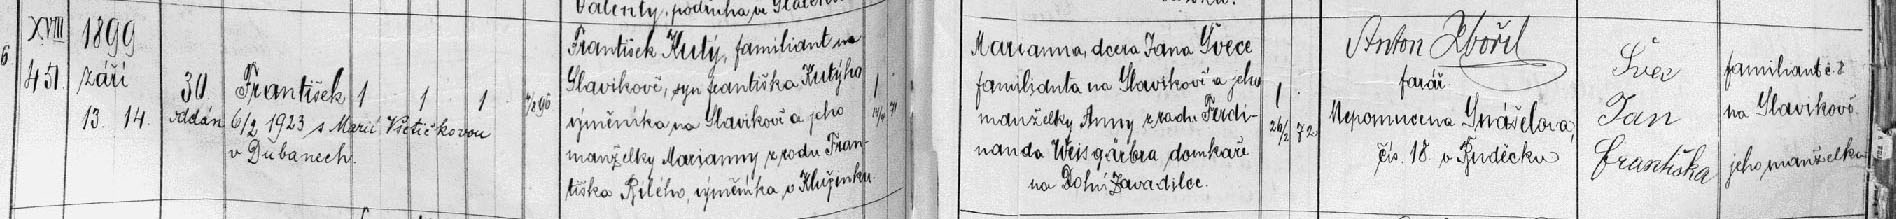 Valenty, podruha v
6
XVIII 1899
451. září
13. 14.
30
oddán
František 1 1 1
6/2 1923 s Marií Vičtičkovou
v Dubanech.
František Kutý, familiant na
Slavíkově, syn Františka Kutýho
výměníka na Slavíkově a jeho
manželky Marianny z rodu Fran-
tiška Bílého, výměníka v Klužínku.
1
Marianna, dcera Jana Švece
familianta na Slavíkově a jeho
manželky Anny z rodu Ferdi-
nanda Weisgärbra, domkaře
na Dolní Zavadilce.
1
26/2 72
Anton Zbořil
farář.
Nepomucena Gnášelova,
čís. 18 v Ludéčku
Švec
Jan
Františka
familiant č. 2
na Slavíkově
jeho manželka